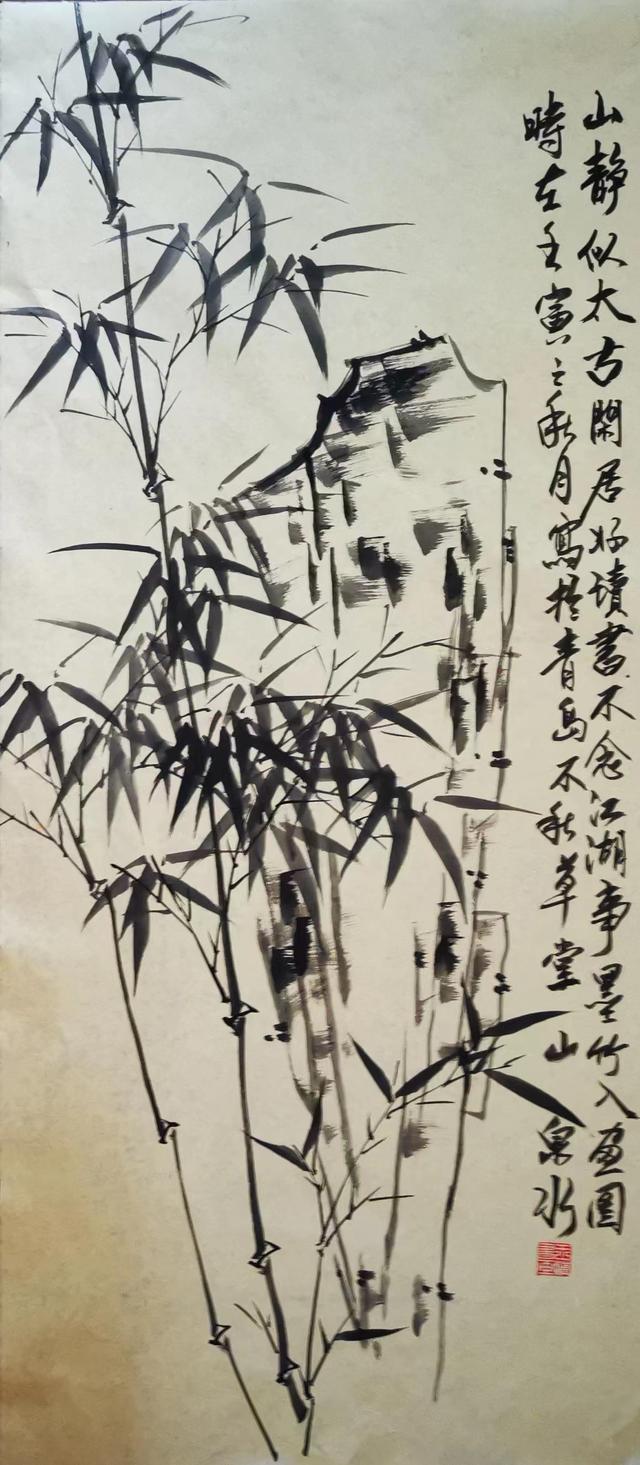 山静似太古閑居好讀書不念江湖事墨竹入画圖
時在壬寅之秋月寫於青島不秋草堂山泉水